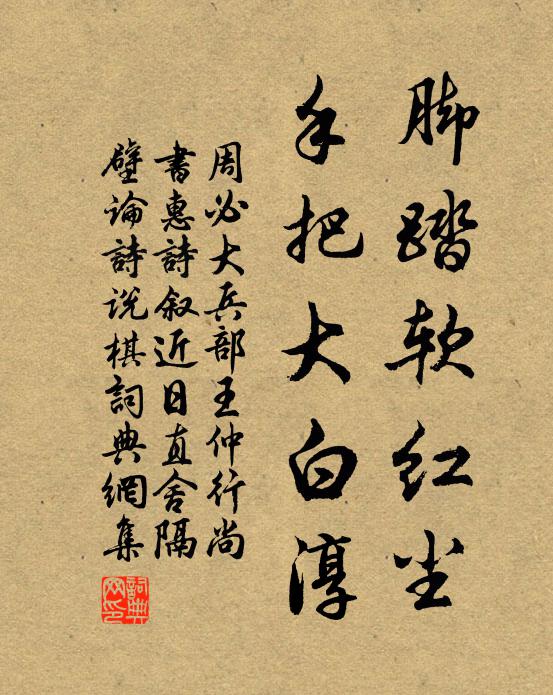 脚踏软红尘
手把大白淳
周必大兵部王仲行尚
书惠詩叙近日直舍隔
壁论詩说棋詞典網集
詞典网印